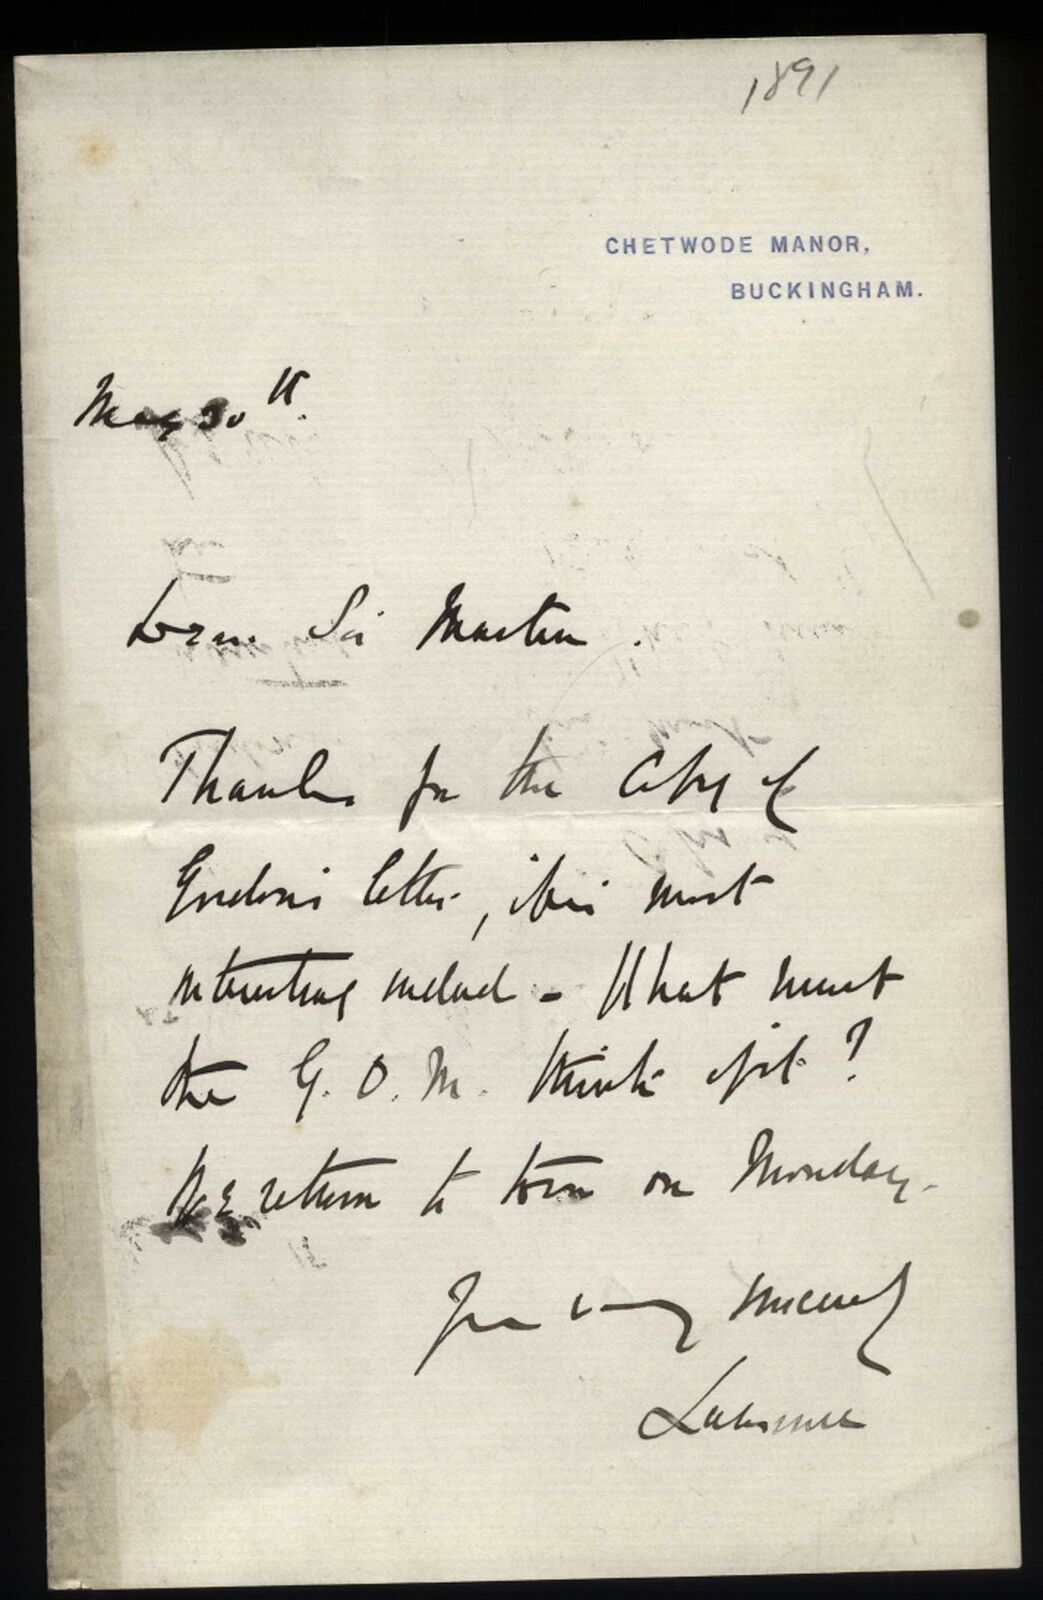 1891
CHETWODE MANOR,
BUCKINGHAM.
May 30th.
Dear Sir Martin.
Thanks for the Copy of
Gordon's letter, it is most
interesting indeed - What must
the G. O. M. think of it ?
We return to town on Monday.
Yrs very sincerely